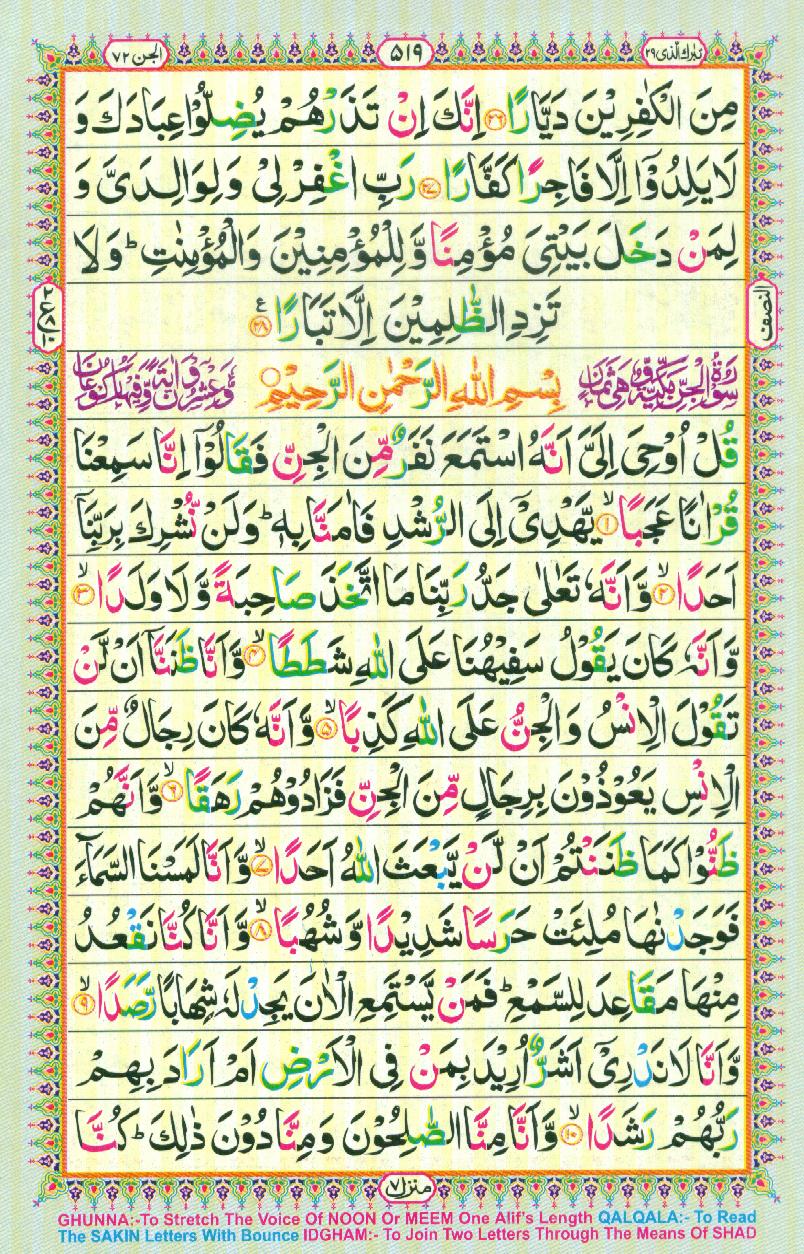 تبٰرك الذی ٢٩
۵۱۹
الجن ٧٢
مِنَ الْكٰفِرِيْنَ دَيَّارًا ﴿۲۶﴾ اِنَّكَ اِنْ تَذَرْهُمْ يُضِلُّوْا عِبَادَكَ وَ
لَا يَلِدُوْۤا اِلَّا فَاجِرًا كَفَّارًا ﴿۲۷﴾ رَبِّ اغْفِرْ لِیْ وَ لِوَالِدَیَّ وَ
لِمَنْ دَخَلَ بَيْتِیَ مُؤْمِنًا وَّ لِلْمُؤْمِنِيْنَ وَالْمُؤْمِنٰتِ ؕ وَ لَا
تَزِدِ الظّٰلِمِيْنَ اِلَّا تَبَارًا ﴿۲۸﴾ ع
النصف
سُوْرَةُ الْجِنِّ مَكِّيَّةٌ وَّ هِیَ ثَمَانٍ بِسْمِ اللّٰهِ الرَّحْمٰنِ الرَّحِيْمِ ۝ وَّ عِشْرُوْنَ اٰيَةً وَّ فِيْهَا رُكُوْعَانِ
قُلْ اُوْحِیَ اِلَیَّ اَنَّهُ اسْتَمَعَ نَفَرٌ مِّنَ الْجِنِّ فَقَالُوْۤا اِنَّا سَمِعْنَا
قُرْاٰنًا عَجَبًا ﴿۱﴾ۙ يَّهْدِیْۤ اِلَی الرُّشْدِ فَاٰمَنَّا بِهٖ ؕ وَ لَنْ نُّشْرِكَ بِرَبِّنَاۤ
اَحَدًا ﴿۲﴾ۙ وَّ اَنَّهٗ تَعٰلٰی جَدُّ رَبِّنَا مَا اتَّخَذَ صَاحِبَةً وَّ لَا وَلَدًا ﴿۳﴾ۙ
وَّ اَنَّهٗ كَانَ يَقُوْلُ سَفِيْهُنَا عَلَی اللّٰهِ شَطَطًا ﴿۴﴾ۙ وَّ اَنَّا ظَنَنَّاۤ اَنْ لَّنْ
تَقُوْلَ الْاِنْسُ وَ الْجِنُّ عَلَی اللّٰهِ كَذِبًا ﴿۵﴾ۙ وَّ اَنَّهٗ كَانَ رِجَالٌ مِّنَ
الْاِنْسِ يَعُوْذُوْنَ بِرِجَالٍ مِّنَ الْجِنِّ فَزَادُوْهُمْ رَهَقًا ﴿۶﴾ۙ وَّ اَنَّهُمْ
ظَنُّوْا كَمَا ظَنَنْتُمْ اَنْ لَّنْ يَّبْعَثَ اللّٰهُ اَحَدًا ﴿۷﴾ۙ وَّ اَنَّا لَمَسْنَا السَّمَآءَ
فَوَجَدْنٰهَا مُلِئَتْ حَرَسًا شَدِيْدًا وَّ شُهُبًا ﴿۸﴾ۙ وَّ اَنَّا كُنَّا نَقْعُدُ
مِنْهَا مَقَاعِدَ لِلسَّمْعِ ؕ فَمَنْ يَّسْتَمِعِ الْاٰنَ يَجِدْ لَهٗ شِهَابًا رَّصَدًا ﴿۹﴾ۙ
وَّ اَنَّا لَا نَدْرِیْۤ اَشَرٌّ اُرِيْدَ بِمَنْ فِی الْاَرْضِ اَمْ اَرَادَ بِهِمْ
رَبُّهُمْ رَشَدًا ﴿۱۰﴾ۙ وَّ اَنَّا مِنَّا الصّٰلِحُوْنَ وَ مِنَّا دُوْنَ ذٰلِكَ ؕ كُنَّا
منزل ۷
GHUNNA:-To Stretch The Voice Of NOON Or MEEM One Alif's Length QALQALA:- To Read
The SAKIN Letters With Bounce IDGHAM:- To Join Two Letters Through The Means Of SHAD